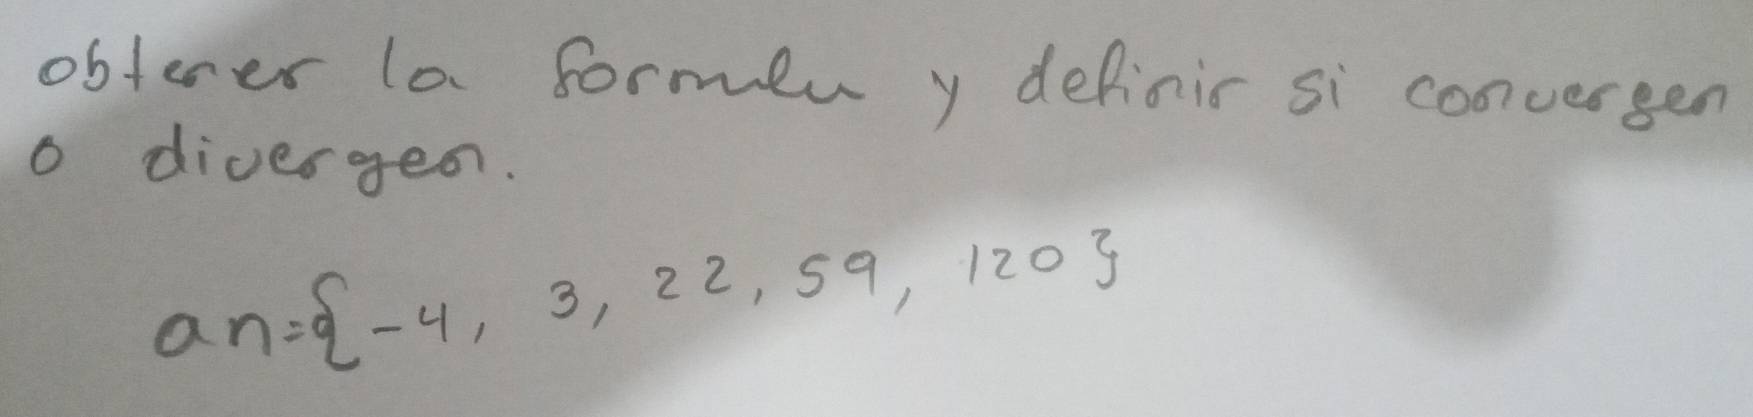 obtener la formula y definir si convergen
o divergen.
an={-4, 3, 22, 59, 120}